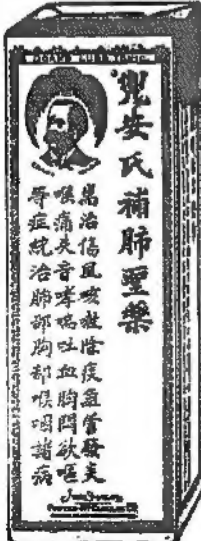 DOAN'S LUNG TONIC
兜安氏補肺聖藥
耑治傷風咳嗽除痰氣管發炎
喉痛失音哮喘吐血胸悶欲嘔
等症統治肺部胸部喉咽諸病